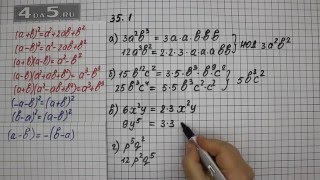 4ДА5.RU
(a+b)²=a²+2ab+b²
(a-b)²=a²-2ab+b²
(a-b)(a+b)=a²-b²
(a-b)(a²+ab+b²)=a³-b³
(a+b)(a²-ab+b²)=a³+b³
(-a-b)²=(a+b)²
(a-b)²=(b-a)²
(a-b)=-(b-a)
35.1
а) 3a²b³ = 3·a·a·b·b·b
12a³b² = 2·2·3·a·a·a·b·b
НОД 3a²b²
б) 15b¹²c² = 3·5·b³·b⁹·c²
25b³c⁴ = 5·5b³c²·c²
5b³c²
в) 6x²y = 2·3·x²y
9y⁵ = 3·3
г) p⁵q²
12p²q⁵